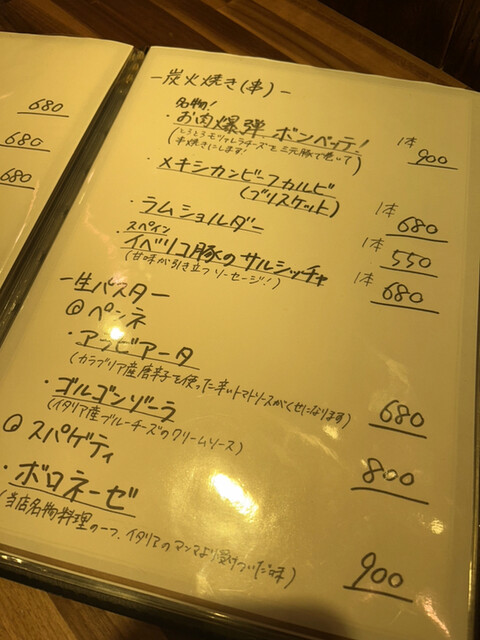 680
680
680
ー炭火焼き(串)ー
名物!
・お肉爆弾 ボンベッテ! 1本 900
(とろとろモッツァレラチーズを三元豚で巻いて
串焼きにします!)
・メキシカンビーフカルビ
(ブリスケット) 1本 680
・ラムショルダー 1本 550
スペイン
・イベリコ豚のサルシッチャ 1本 680
(甘味が引き立つソーセージ!)
ー生パスター
@ペンネ
・アラビアータ 680
(カラブリア産唐辛子を使った辛いトマトソースがくせになります)
・ゴルゴンゾーラ 800
(イタリア産ブルーチーズのクリームソース)
@スパゲティ
・ボロネーゼ 900
(当店名物料理の一つ、イタリアのマンマより受けついだ味)